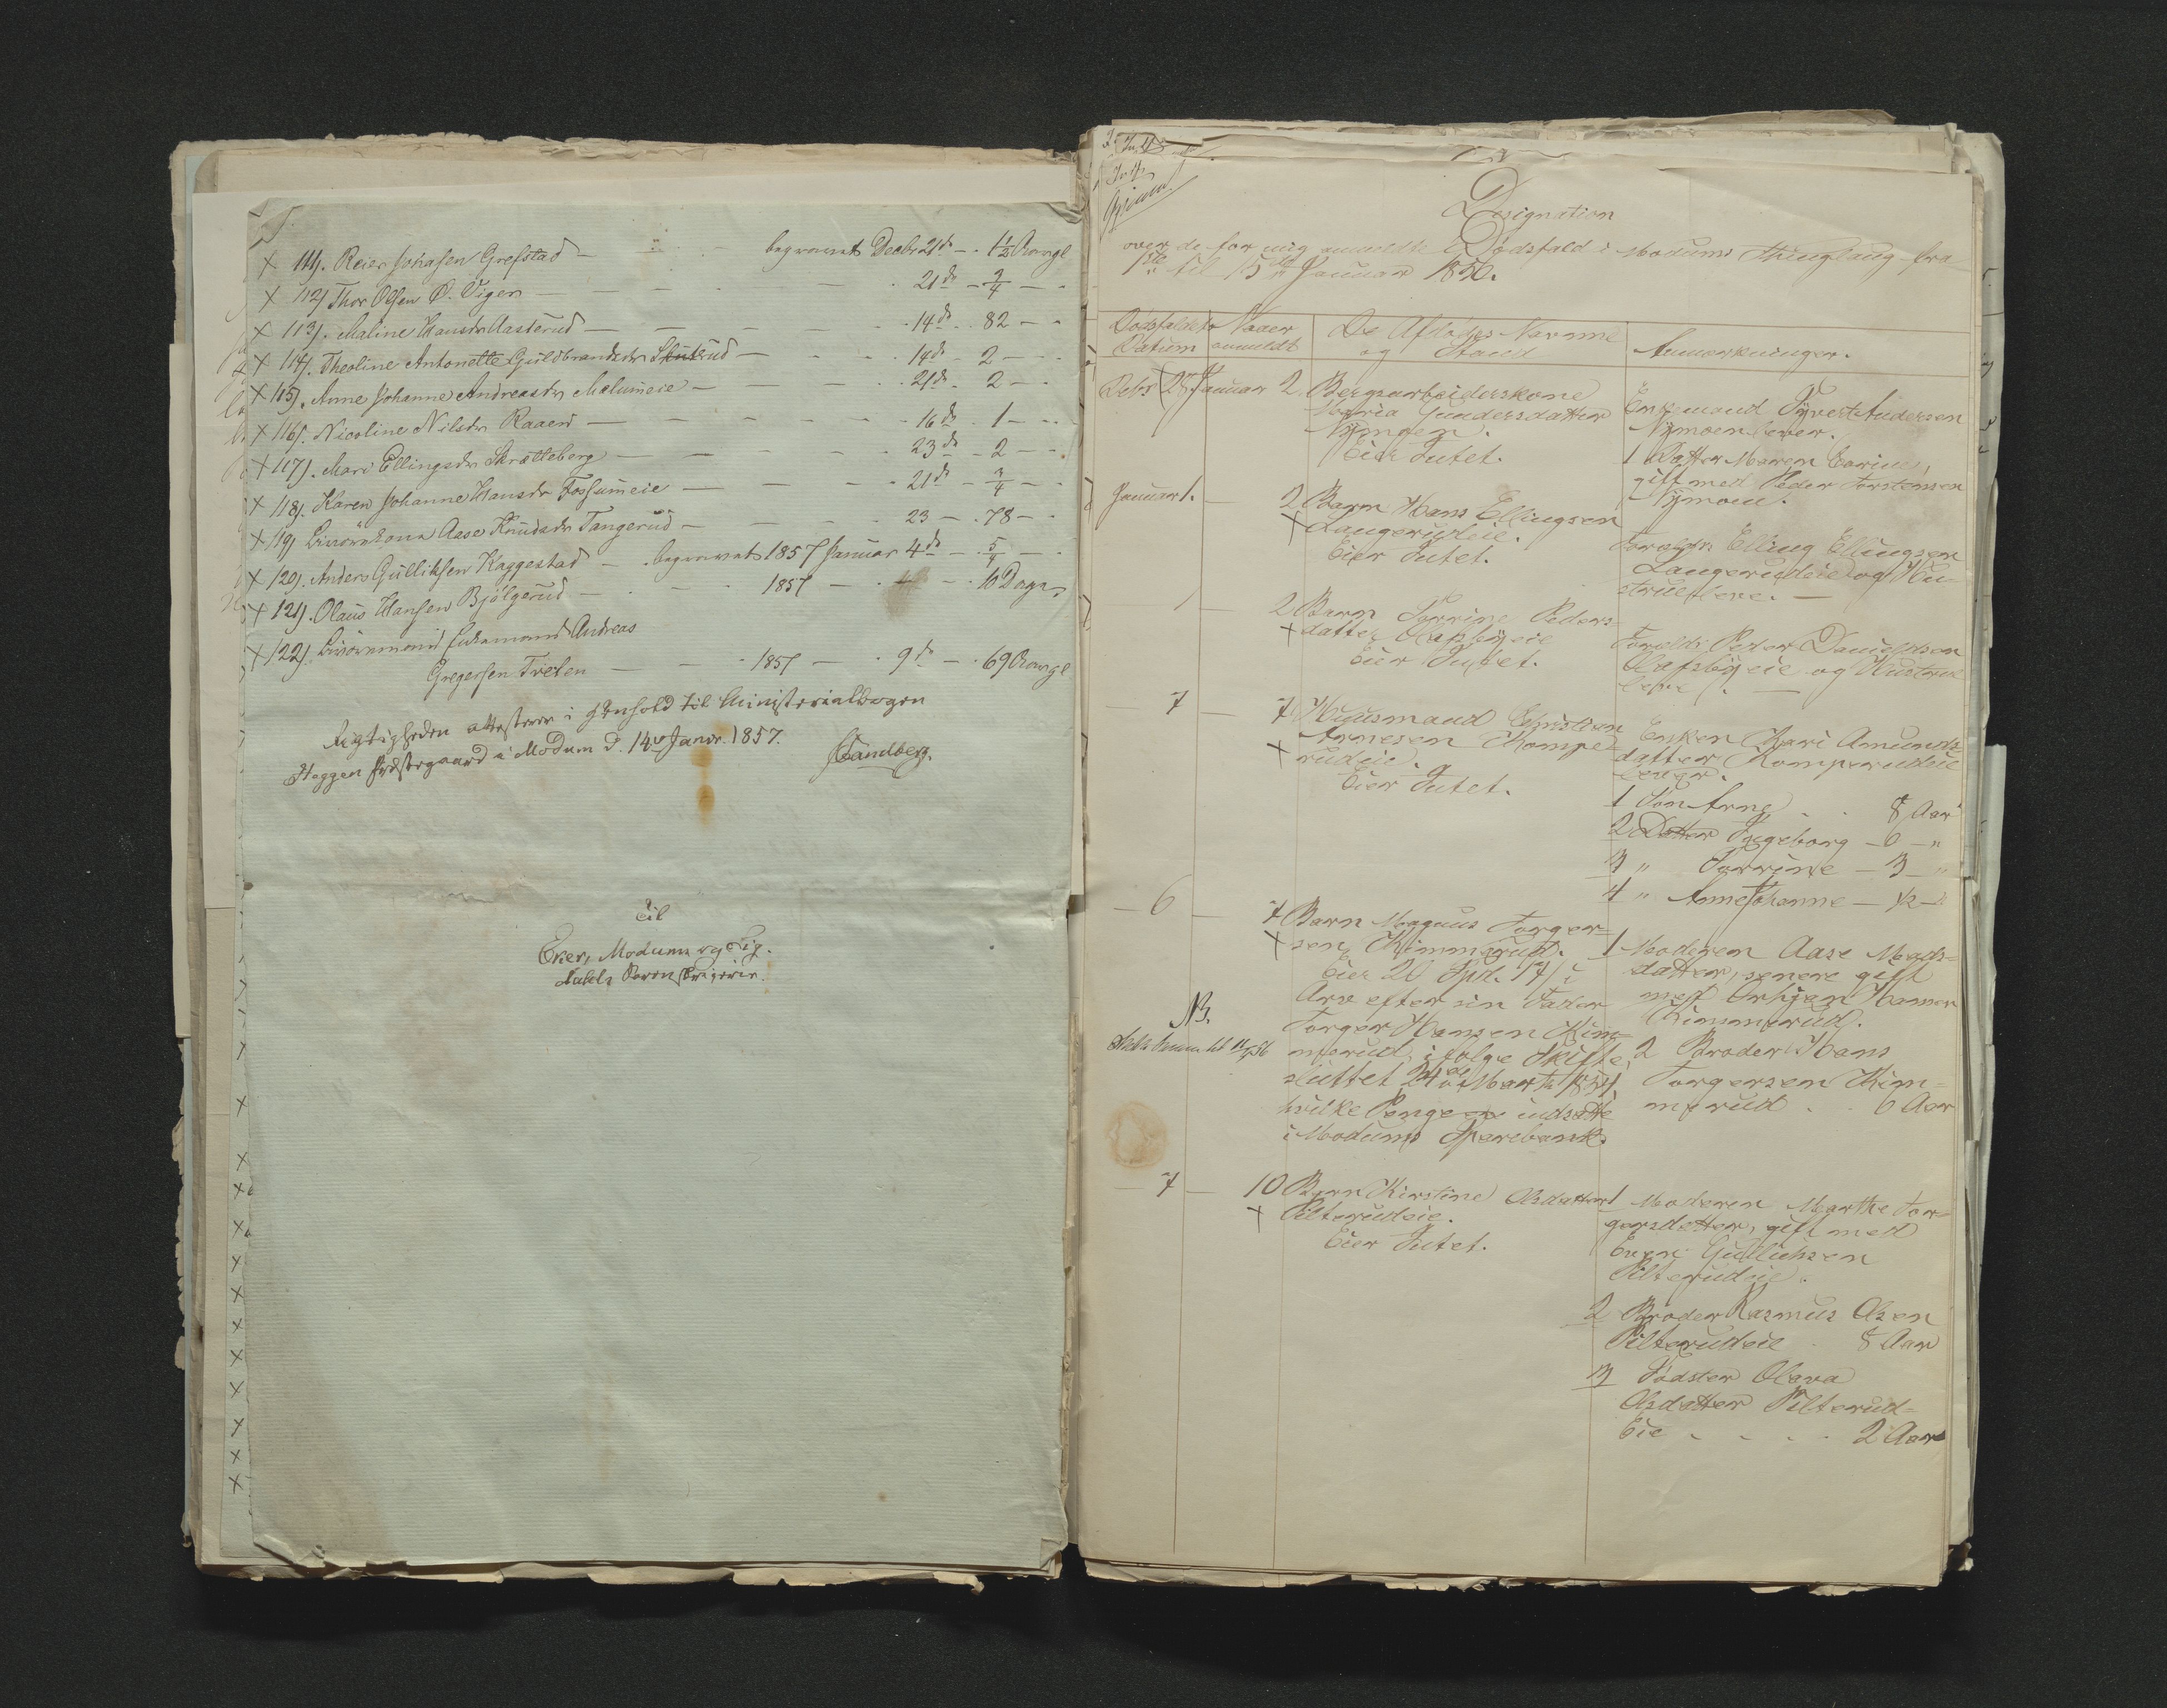 X 111). Reier Johasen Grefstad — begravet Decbr 21de — 1½ Aargl
X 112) Thor Olsen Ø. Vigen — 21de — 3/4 —
X 113). Maline Hansdr Aasterud — 14de . 82 —
X 114). Theoline Antonette Guldbrandsdr Skuterud — 14de — 2 —
X 115). Anne Johanne Andreasdr Melumeie — 21de — 2 —
X 116). Nicoline Nilsdr Raaen — 16de . 1 —
X 117). Mari Ellingsdr Skrætteberg — 23de — 2 —
X 118). Karen Johanne Hansdr Fossumeie — 21de — 3/4 —
X 119) Aase Knudsdr Tangerud — 23 — . 78 —
X 120). Anders Gulliksen Kaggestad — begravet 1857 Januar 4de — 5/4 —
X 121). Olaus Hansen Bjølgerud — 1857 — 4 — 10 Dage
X 122). Andreas
Gregersen Treten — 1857 — 9de — 69 Aargl
Rigtigheden attesteres i Henhold til Ministerialbogen
Heggen Præstegaard i Modum d. 14de Janr. 1857.
Sandberg.
Til
Eker, Modum og Sig-
dahls Sorenskriveri.
Designation
over de for mig anmeldte Dødsfald i Modums Thinglaug fra
1ste til 15de Januar 1856.
Dødsfaldets Datum
Naar anmeldt
De Afdødes Navne
og Stand
Anmærkninger.
Debr 28 Januar 2 Bergsarbeiderskone
Maria Gundersdatter
Nymoen.
Eier Intet.
Enkemand Syvert Andersen
Nymoen lever.
1 Datter Maren Carine,
gift med Peder Torstensen
Nymoen.
Januar 1. — 2 Barn Hans Ellingsen
X Langerudeie.
Eier Intet.
Foreldre Elling Ellingsen
Langerudeie og Hu-
strue leve. —
— 2 Barn Torrine Peders-
X datter
Eier Intet.
Foreldre Peder Danieldsen
og Hustrue
leve. —
— 7 — 7 Huusmand Christian
Arnesen Kompe-
X rudeie.
Eier Intet.
Enken Kari Amunds-
datter Komperudeie
lever.
1 Søn Arne . . 8 Aar
2 Datter Ingeborg — 6 — "
3 " Torrine — 3 — "
4 " Anne Johanne — ½ — "
— 6 — 7 Barn Magnus Torger-
X sen Kimmerud.
Eier 20 Spd. 17 i
Arv efter sin Fader
Torger Hansen Kim-
merud, i følge Skifte
sluttet 24de Marts 1854,
hvilke Penge er indsatte
i Modums Sparebank.
NB.
1 Moderen Aase Mads-
datter, senere gift
med Hansen
Kimmerud.
2 Broder Hans
Torgersen Kim-
merud . . 6 Aar
— 7 — 10 Barn Kirstine Olsdatter
X Pilterudeie.
Eier Intet.
1 Moderen Marthe Tor-
gersdatter, gift med
Even Gulliksen
Pilterudeie.
2 Broder Rasmus Olsen
Pilterudeie . 8 Aar
3 Södster Olava
Olsdatter Pilterud-
Eie . . . . 2 Aar